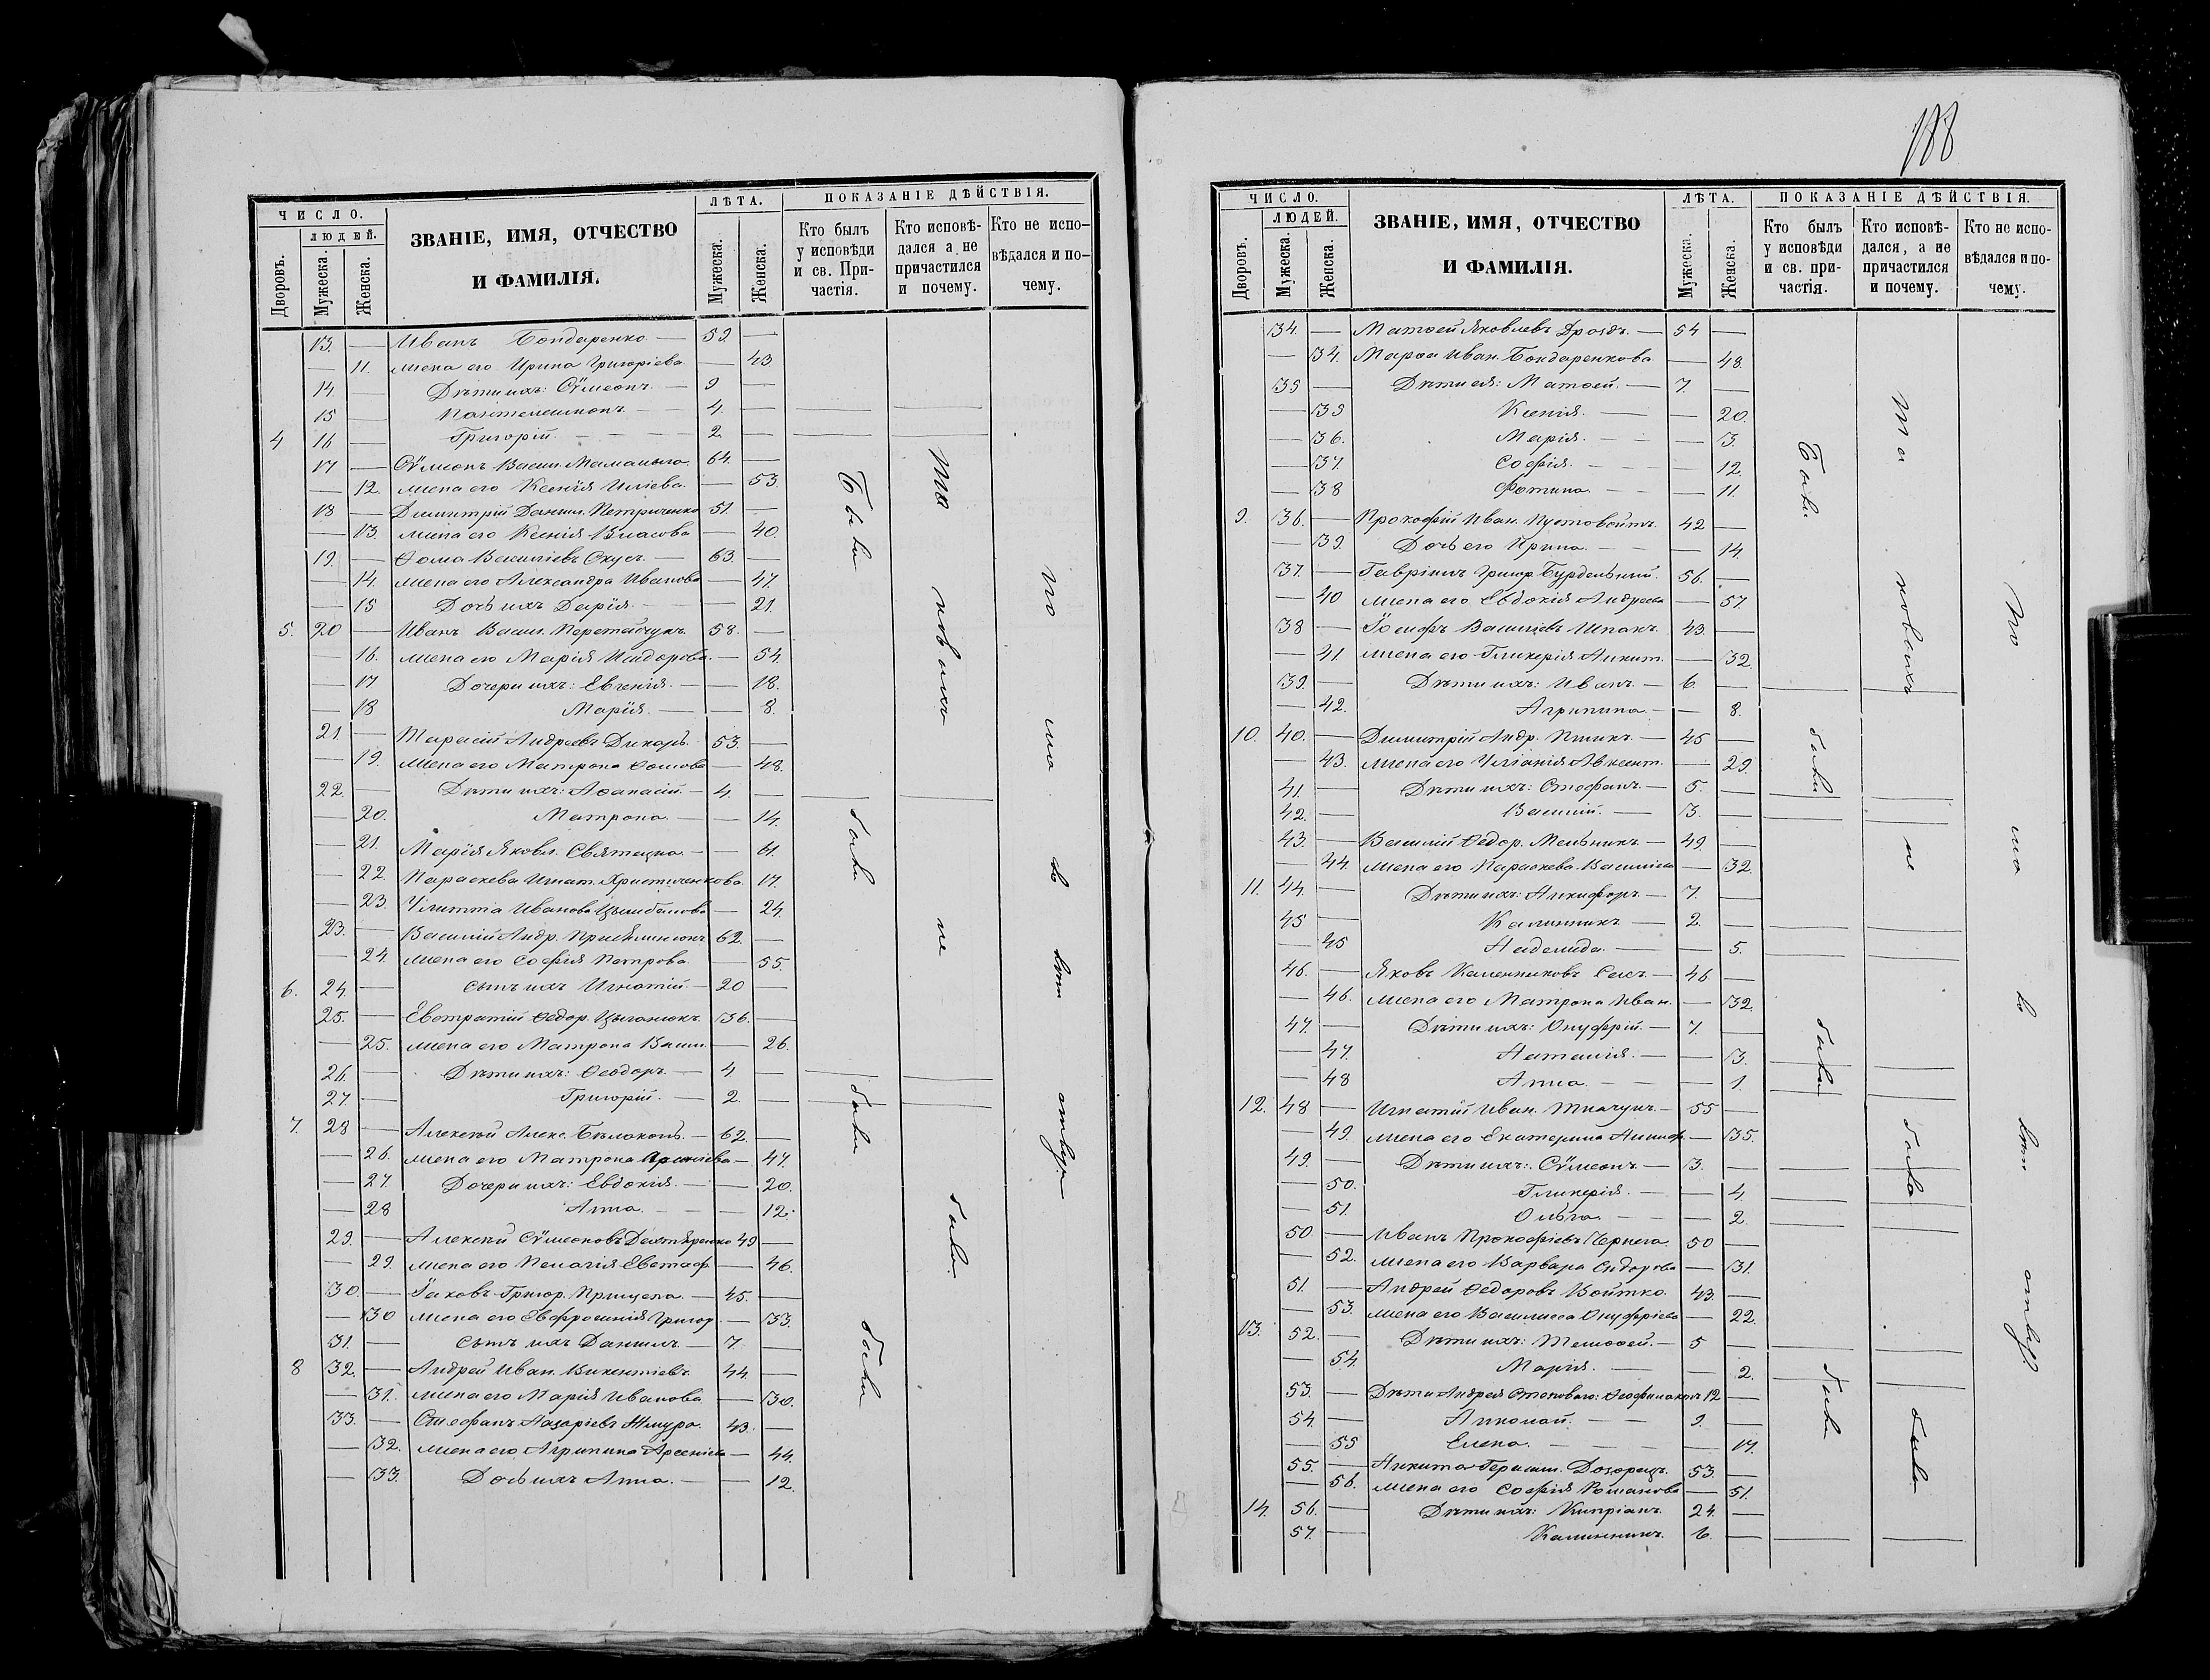 ЧИСЛО.
ЛЮДЕЙ.
Дворовъ.
Мужеска.
Женска.
ЗВАНІЕ, ИМЯ, ОТЧЕСТВО
И ФАМИЛІЯ.
ЛѢТА.
Мужеска.
Женска.
ПОКАЗАНІЕ ДѢЙСТВІЯ.
Кто былъ
у исповѣди
и св. При-
частія.
Кто исповѣ-
дался а не
причастился
и почему.
Кто не испо-
вѣдался и по-
чему.
13. — Иванъ Бондаренко — 52 —
— 11. жена его Ирина Григоріева — 43
14. — Дѣти ихъ: Сѵмеонъ. — 9 —
15 — Пантелеимонъ. — 4. —
4 16 — Григорій. — 2. —
17 — Сѵмеонъ Васил. 64. —
— 12. жена его Ксенія Иліева. — 53.
18 — Димитрій Даниил. Петриченко 51. —
— 13. жена его Ксенія Власова — 40.
19. — Ѳома Василіевъ 63. —
— 14. жена его Александра Иванова — 47.
— 15 Дочь ихъ Дарія. — 21.
5. 20 — Иванъ Васил. 58. —
— 16. жена его Марія Исидорова. — 54.
— 17 Дочери ихъ: Евгенія. — 18.
— 18 Марія. — 8.
21. — Тарасій Андреевъ Дикаръ. 53. —
— 19. жена его Матрона Ѳомова — 48.
22. — Дѣти ихъ: Аѳанасій. — 4. —
— 20. Матрона. — 14.
— 21. Марія Яковл. — 61.
— 22. Параскева Игнат. 17.
— 23. Іулитта Иванова — 24.
23. — Василій Андр. 62. —
— 24. жена его Софія Петрова. — 55.
6. 24. — Сынъ ихъ Игнатій — 20 —
25. — Евстратій Ѳедор. Цыганюкъ. 36. —
— 25. жена его Матрона Васил. — 26.
26. — Дѣти ихъ: Ѳеодоръ. — 4 —
27. — Григорій. — 2. —
7. 28 — Алексѣй Алекс. Бѣлоконь. — 62. —
— 26. жена его Матрона — 47.
— 27. Дочери ихъ: Евдокія. — 20.
— 28 Анна. — 12.
29. — Алексѣй Сѵмеоновъ Дехтяренко 49 —
— 29. жена его Пелагія Евстаф. — 46.
30. — Іаковъ Григор. Прищепа. — 45. —
— 30 жена его Евфросинія Григор. — 33.
31. — Сынъ ихъ Даніилъ. — 7. —
8 32. — Андрей Иван. Викентіевъ. 44. —
— 31. жена его Марія Иванова — 30.
33. — Стефанъ Назаріевъ Жмура. 43. —
— 32. жена его Агрипина Арсеніева — 44.
— 33. Дочь ихъ Анна. — 12.
Были
были
были
были
То
новыхъ
не
были
по
его
въ
188
ЧИСЛО.
ЛЮДЕЙ.
Дворовъ.
Мужеска.
Женска.
ЗВАНІЕ, ИМЯ, ОТЧЕСТВО
И ФАМИЛІЯ.
ЛѢТА.
Мужеска.
Женска.
ПОКАЗАНІЕ ДѢЙСТВІЯ.
Кто былъ
у исповѣди
и св. при-
частія.
Кто исповѣ-
дался, а не
причастился
и почему.
Кто не испо-
вѣдался и по-
чему.
34. — Матѳей Яковлевъ Дроздъ. — 54 —
— 34. Марѳа Иван. Бондаренкова — 48.
35 — Дѣти ея: Матѳей. — 7. —
— 35 Ксенія. — 20.
— 36. Марія. — 13.
— 37. Софія. — 12.
— 38 Фотина. — 11.
9. 36. — Прокофій Иван. Пустовойтъ. 42 —
— 39. Дочь его Ирина. — 14.
37. — Гавріилъ Григор. Бурдельный. 56. —
— 40 жена его Евдокія Андреева — 57.
38 — Іосифъ Василіевъ Шпакъ. 43. —
— 41. жена его Гликерія Никит. — 32.
39. — Дѣти ихъ: Иванъ. — 6. —
— 42. Агрипина. — 8.
10. 40. — Димитрій Андр. — 45 —
— 43. жена его Іуліанія Авксент. — 29.
41. — Дѣти ихъ: Стефанъ. — 5. —
42. — Василій. — 3. —
43. — Василій Ѳедор. Мельникъ. — 49. —
— 44. жена его Параскева Василіева — 32.
11. 44. — Дѣти ихъ: Никифоръ. — 7. —
45 — Калинникъ — 2. —
— 45 Надежда. — 5.
46. — Яковъ Калинниковъ — 46 —
— 46. жена его Матрона Иван. — 32.
47. — Дѣти ихъ: Онуфрій. — 7. —
— 47. Наталія. — 3.
— 48 Анна. — 1
12. 48 — Игнатій Иван. Ткачукъ. — 55 —
— 49. жена его Екатерина Никиф. — 35.
49. — Дѣти ихъ: Сѵмеонъ. — 3. —
— 50. Гликерія. — 4.
— 51. Ольга. — 2.
50 — Иванъ Прокофіевъ Чернега. 50 —
— 52. жена его Варвара Сидорова — 31.
51. — Андрей Ѳедоровъ Войтко. 43. —
— 53. жена его Василисса Онуфріева — 22.
13. 52. — Дѣти ихъ: Тимоѳей. — 5 —
— 54. Марія. — 2.
53. — Дѣти Андрея Ѳеофилактъ 12 —
54. — Николай. — 9. —
— 55 Елена. — 17.
55. — Никита Герасим. Дозорецъ. 53. —
— 56. жена его Софія Романова — 51.
14. 56. — Дѣти ихъ: Кипріанъ. 24. —
57. — Калинникъ. 6. —
Были
были
были
были
То
новыхъ
не
было
были
по
его
въ